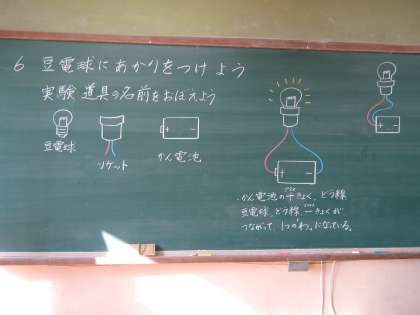 6 豆電球にあかりをつけよう
実験道具の名前をおぼえよう
豆電球
ソケット
+ -
かん電池
+ -
+ -
・かん電池の+きょく、どう線
プラス
豆電球、どう線、-きょくが
マイナス
つながって、1つの"わ"になっている。